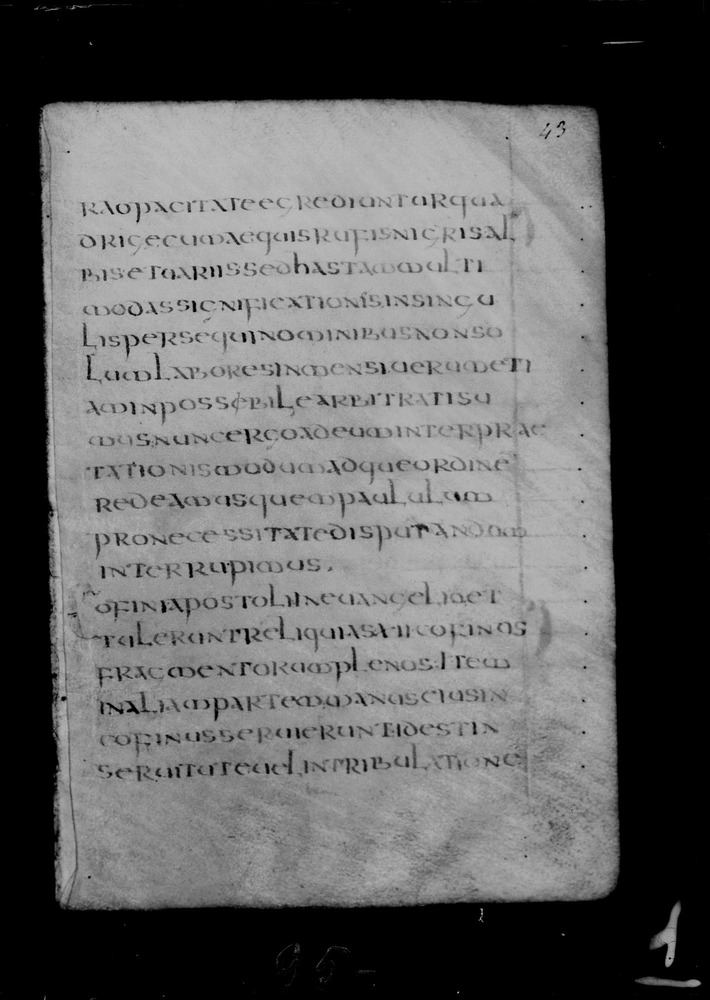 43
RAOPACITATEEGREDIUNTURQUA
DRIGECUMAEQUISRUFISNIGRISAL
BISETUARIISSEDHASTAMMULTI
MODASSIGNIFICATIONISINSINGU
LISPERSEQUINOMINIBUSNONSO
LUMLABORESINMENSIUERUMETI
AMINPOSSEBILEARBITRATISU
MUSNUNCERGOADEUMINTERPRAE
TATIONISMODUMADQUEORDINE
REDEAMUSQUEMPAULULUM
PRONECESSITATEDISPUTANDUM
INTERRUPIMUS.
OFINIAPOSTOLIINEUANGELIOET
TULERUNTRELIQUIASXIICOFINOS
FRAGMENTORUMPLENOSITEM
INALIAMPARTEMMANUSEIUSIN
COFINUSSERUIERUNTIDESTIN
SERUITUTEUELINTRIBULATIONE
95-
1